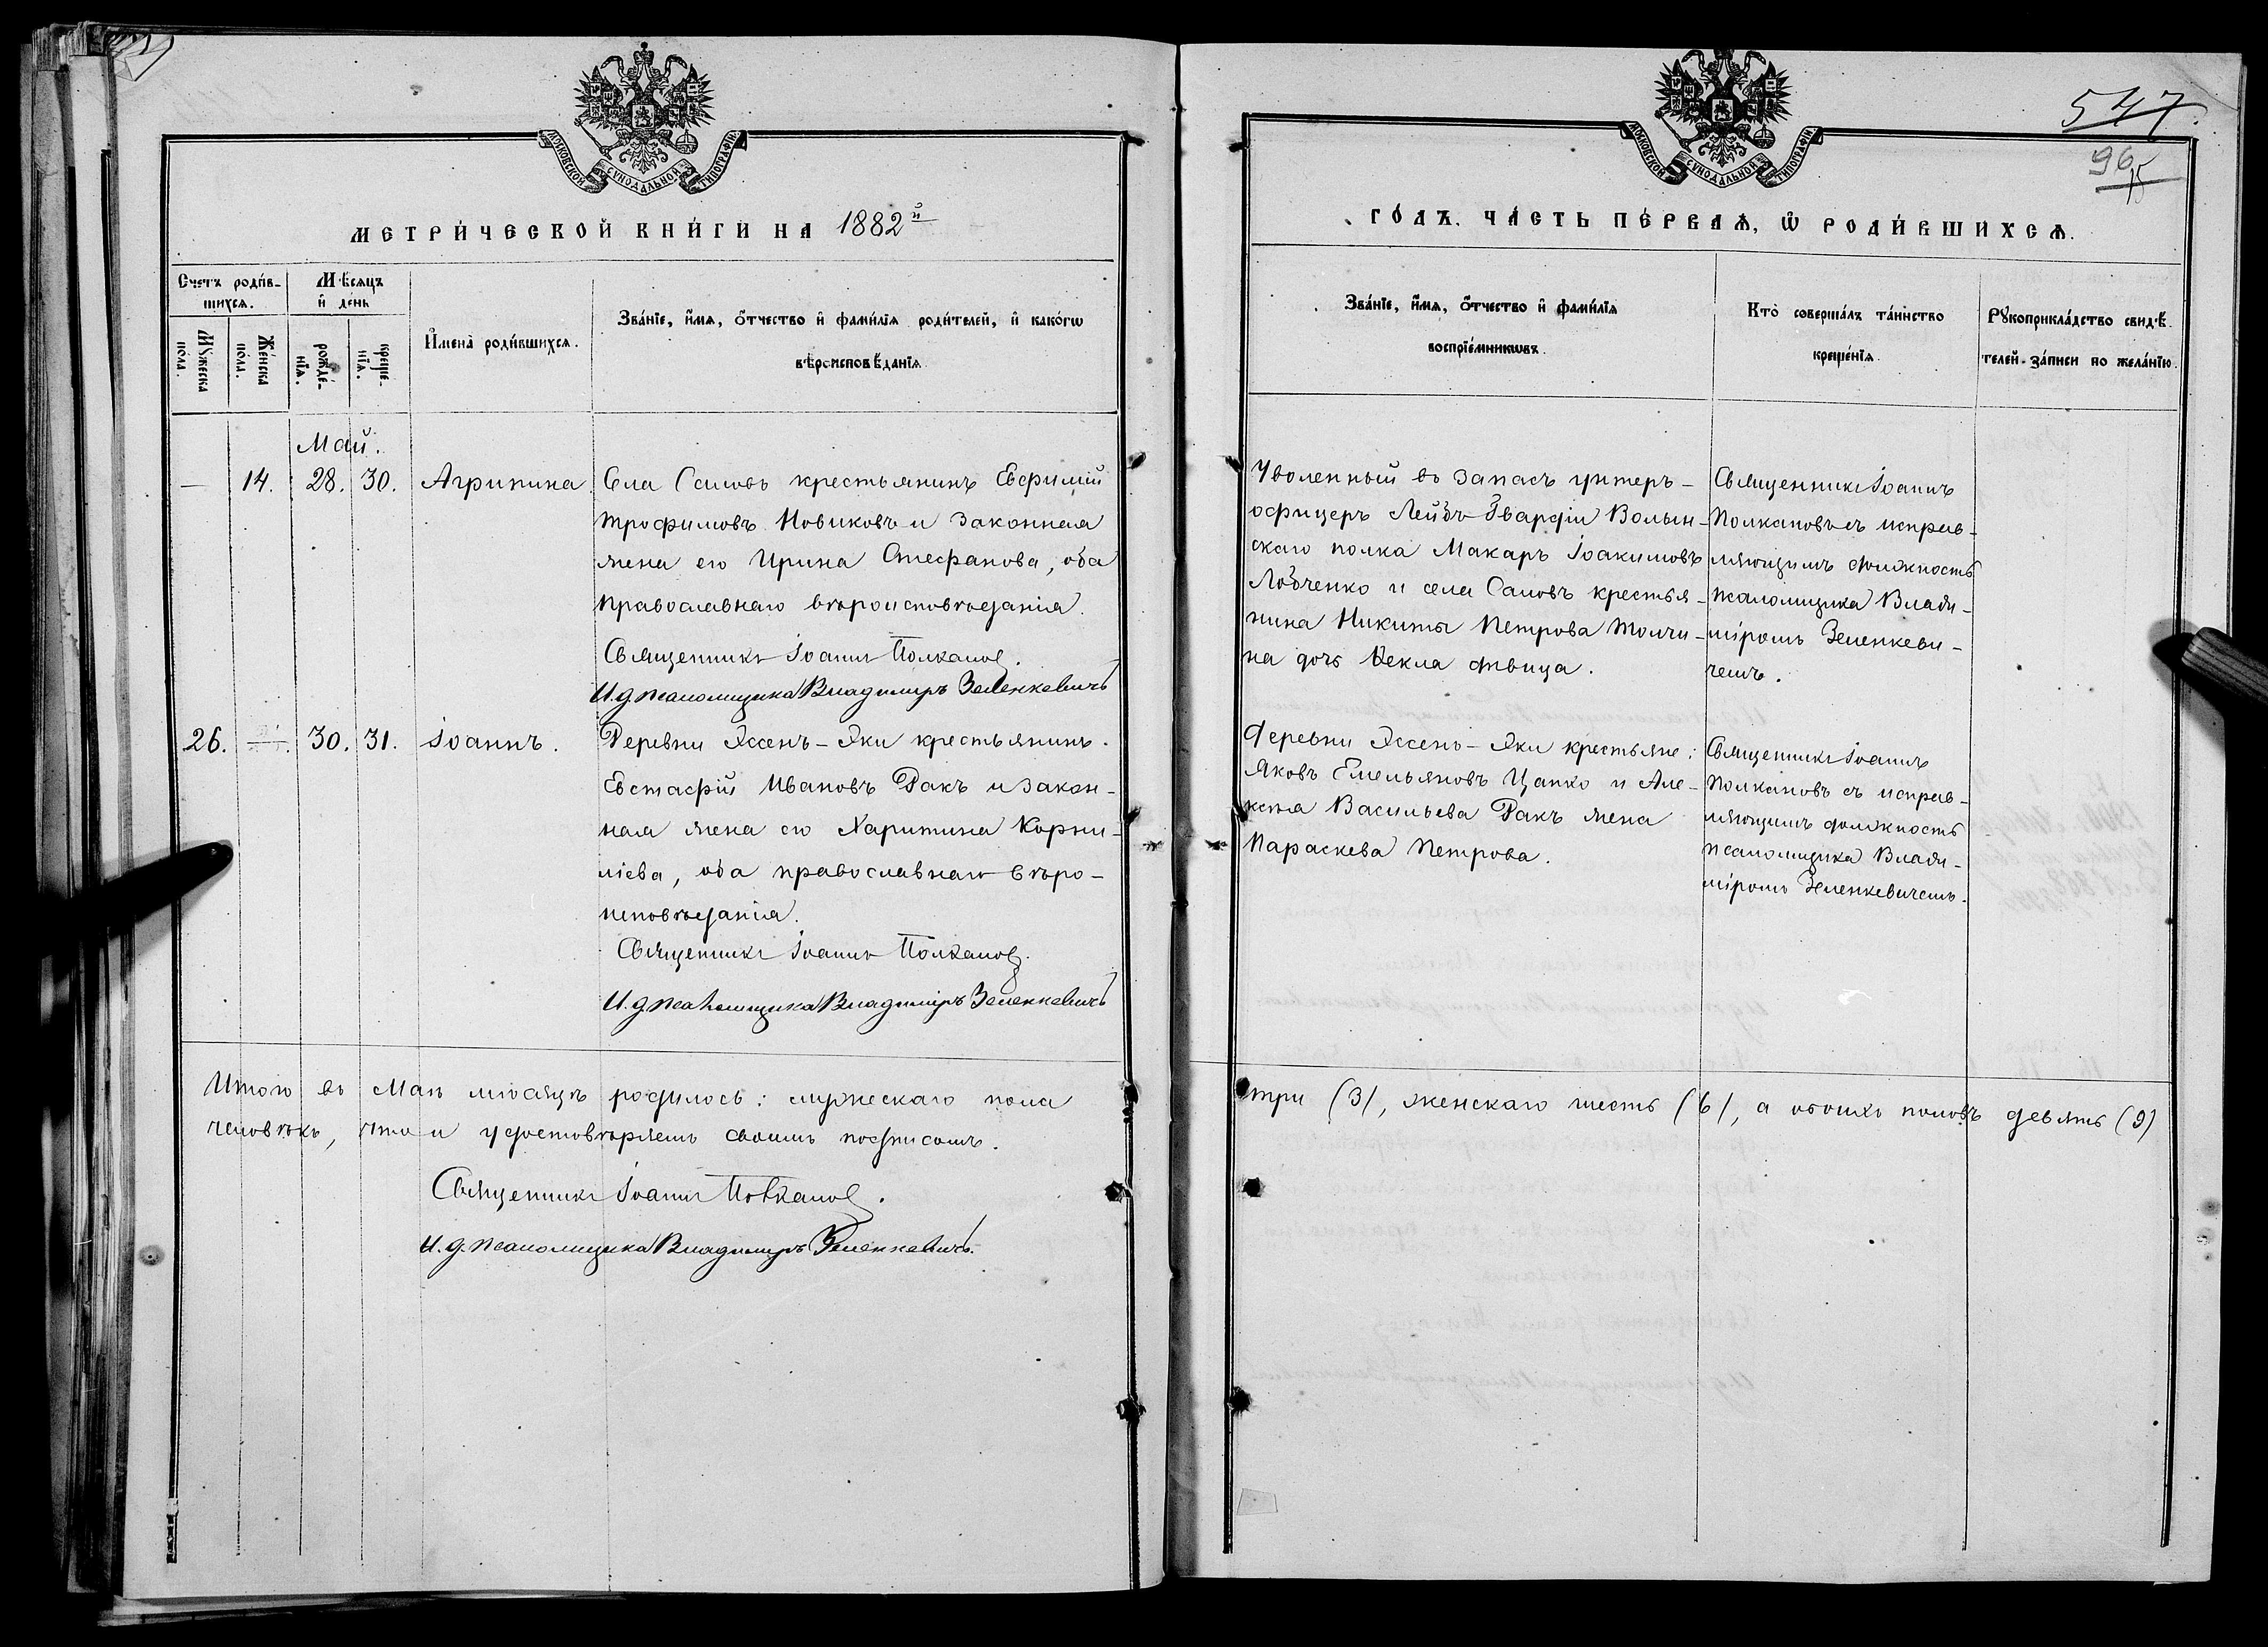 МОСКОВСКОЙ СѴНОДАЛЬНОЙ ТИПОГРАФІИ.
МЕТРИ́ЧЕСКОЙ КНИ́ГИ НА 1882й
Счетъ роди́в-
шихсѧ.
Мѣ́сѧцъ
и҆ де́нь
Мꙋ́жеска
по́ла.
Же́нска
по́ла.
рожде́-
нїѧ.
креще́-
нїѧ.
И҆мена̀ роди́вшихсѧ.
Зва́нїе, и҆́мѧ, ѻ҆́тчество и҆ фами́лїѧ роди́телей, и҆ како́гѡ
вѣроисповѣ́данїѧ
Май.
— 14. 28. 30. Агрипина.
Села Саловъ крестьянинъ Евфимій
Трофимовъ Новиковъ и законная
жена его Ирина Стефанова, оба
православнаго вѣроисповѣданія.
Священникъ Іоаннъ Полкановъ.
И.д. псаломщика Владимиръ Зеленкевичъ
26. — 30. 31. Іоаннъ.
Деревни Эссенъ-Эки крестьянинъ
Евстафій Ивановъ Ракъ и закон-
ная жена его Харитина Корни-
ліева, оба православнаго вѣро-
исповѣданія.
Священникъ Іоаннъ Полкановъ.
И.д. псаломщика Владиміръ Зеленкевичъ
Итого въ Маѣ мѣсяцѣ родилось: мужескаго пола
человѣкъ, что и удостовѣряемъ своимъ подписомъ.
Священникъ Іоаннъ Полкановъ.
И.д. псаломщика Владимиръ Зеленкевичъ.
547
96
МОСКОВСКОЙ СѴНОДАЛЬНОЙ ТИПОГРАФІИ.
ГО́ДЪ. ЧА́СТЬ ПЕ́РВАѦ, Ѡ҆ РОДИ́ВШИХСѦ.
Зва́нїе, и҆́мѧ, ѻ҆́тчество и҆ фами́лїѧ
воспрїе́мникѡвъ.
Кто̀ соверша́лъ та́инство
креще́нїѧ.
Рꙋкоприкла́дство свидѣ́-
телей за́писи по жела́нїю.
Уволенный въ запасъ унтеръ-
офицеръ Лейбъ-Гвардіи Волын-
скаго полка Макаръ Іоакимовъ
Любченко и села Саловъ крестья-
нина Никиты Петрова Толчи-
на дочь Ѳекла дѣвица.
Священникъ Іоаннъ
Полкановъ съ исправ-
ляющимъ должность
псаломщика Влади-
міромъ Зеленкеви-
чемъ.
Деревни Эссенъ-Эки крестьяне:
Яковъ Емельяновъ Цапко и Але-
ксѣя Васильева Ракъ жена
Параскева Петрова.
Священникъ Іоаннъ
Полкановъ съ исправ-
ляющимъ должность
псаломщика Влади-
міромъ Зеленкевичемъ.
три (3), женскаго шесть (6), а обоихъ половъ девять (9)